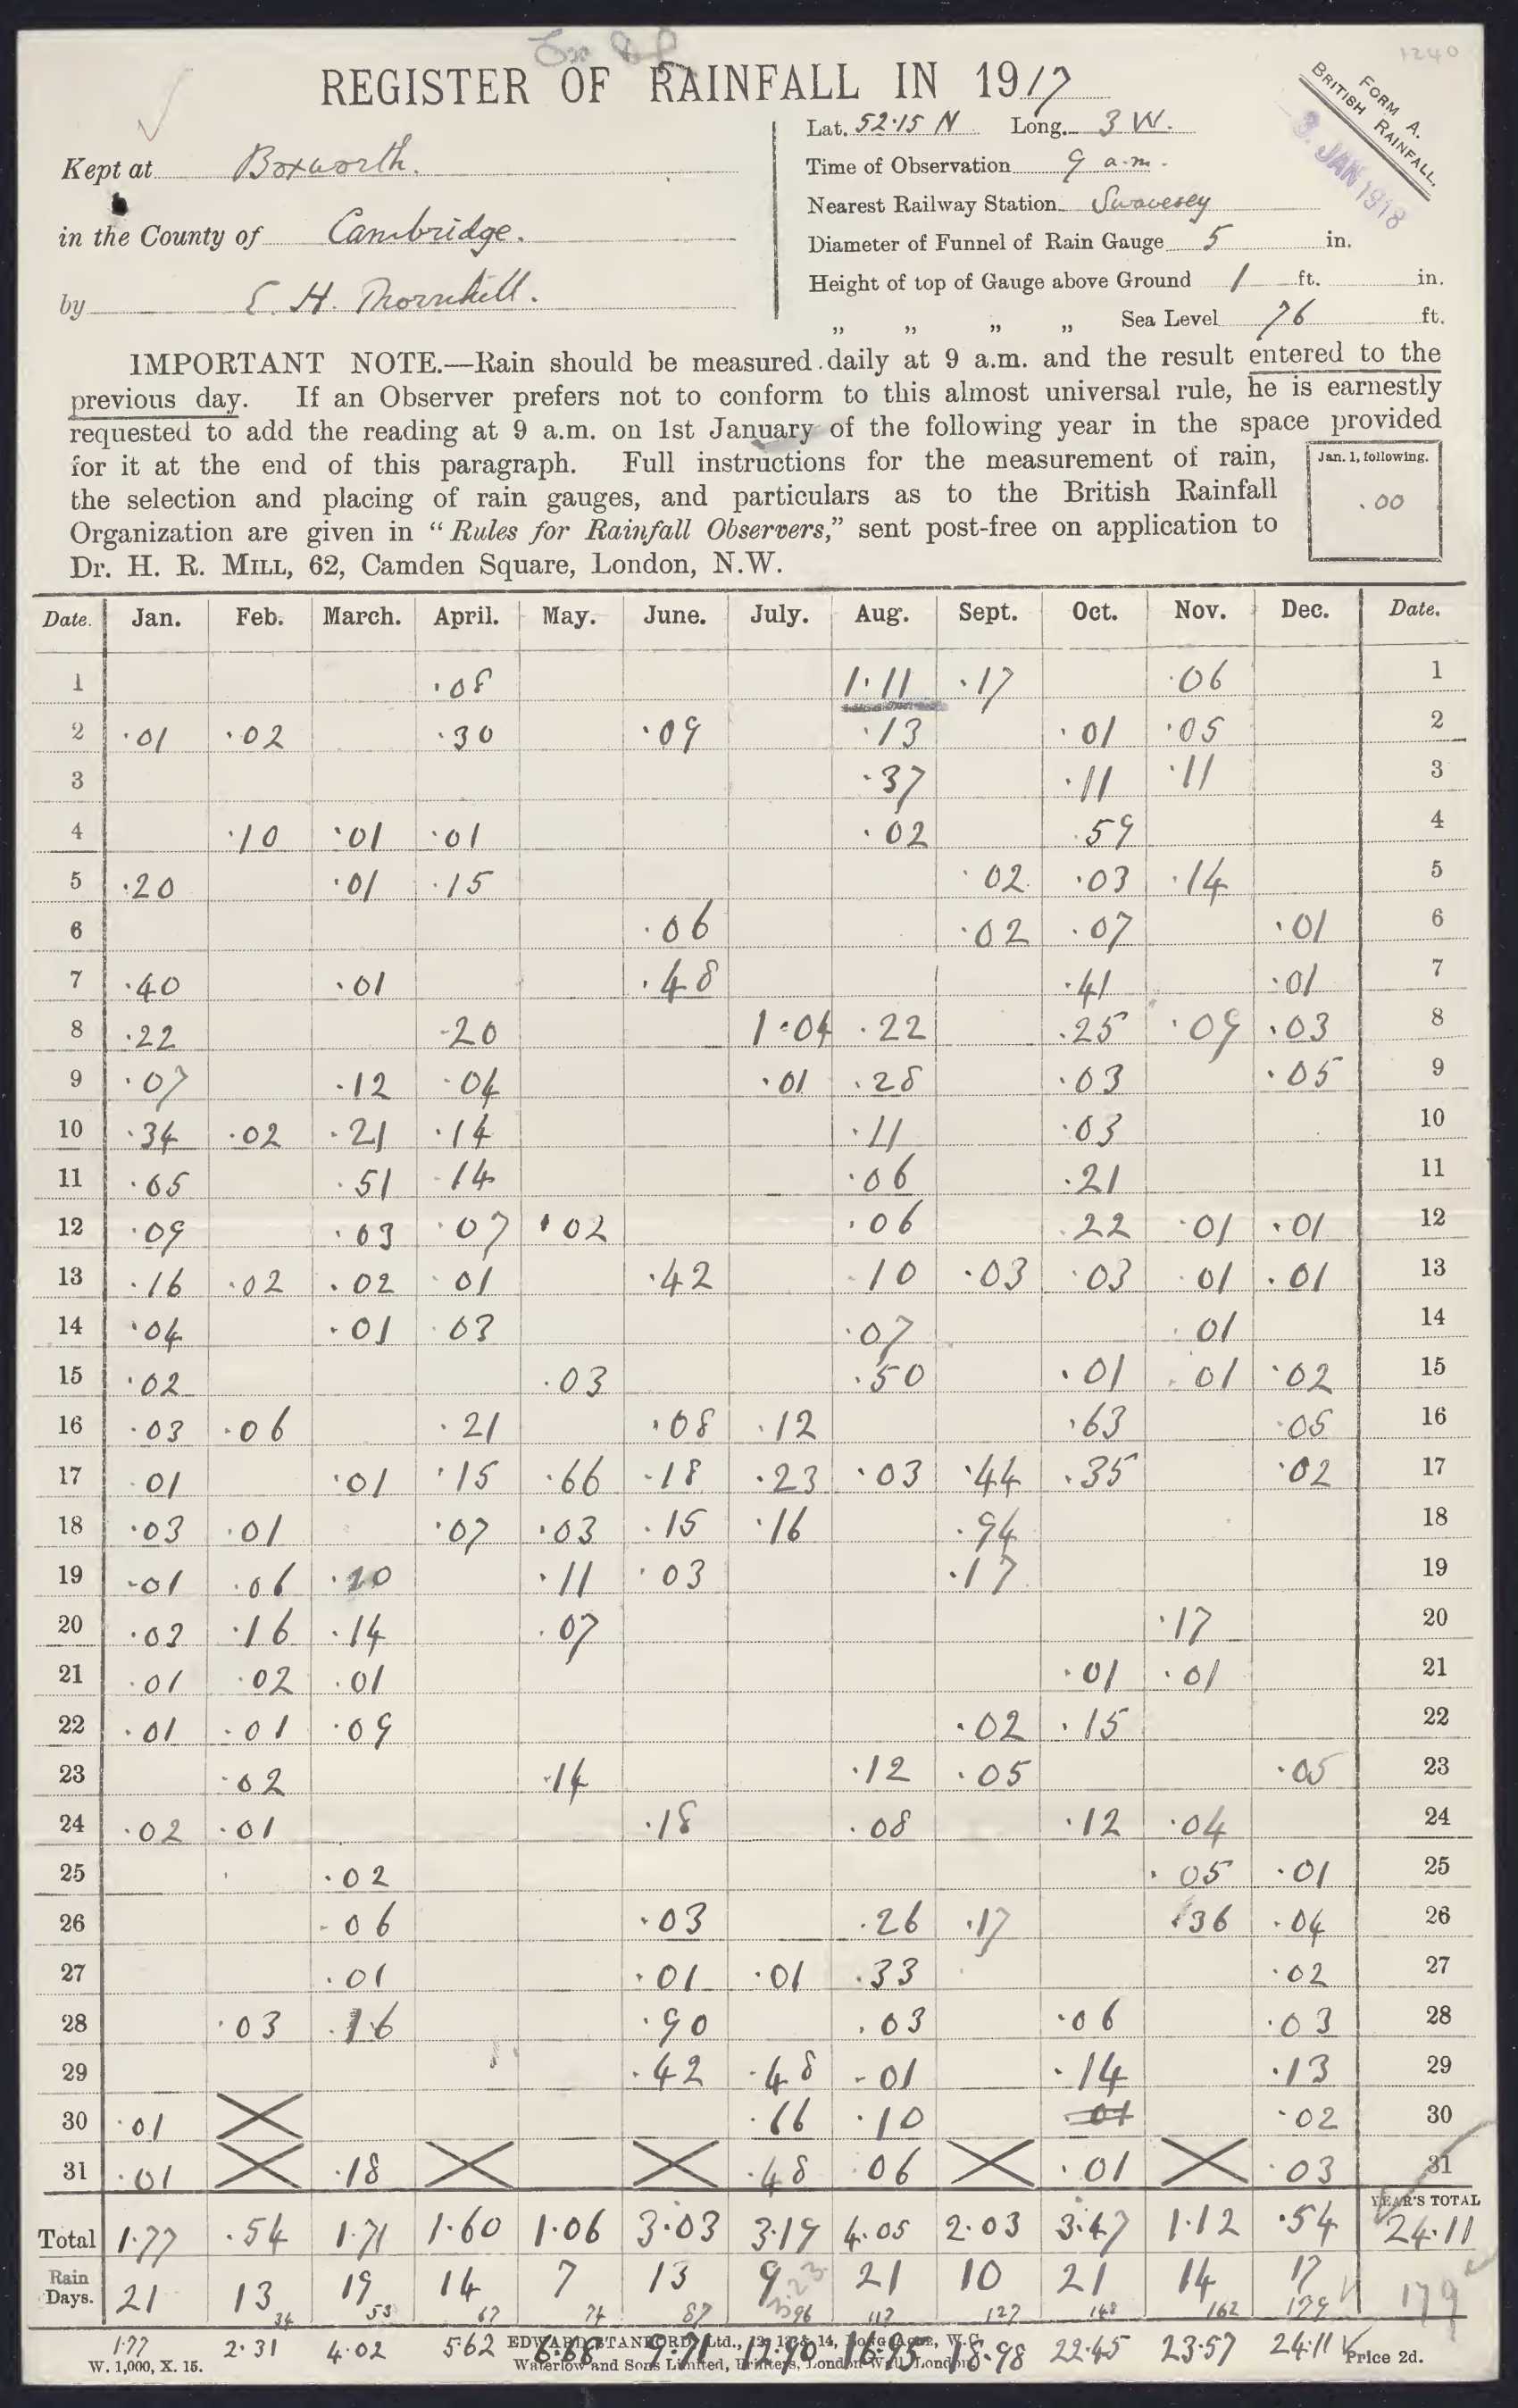 1240
REGISTER OF RAINFALL IN 1917
FORM A.
BRITISH RAINFALL.
3. JAN 1918
Kept at Boxworth.
in the County of Cambridge.
by E. H. Thornhill.
Lat. 52.15 N Long. 3 W.
Time of Observation 9 a.m.
Nearest Railway Station Swavesey
Diameter of Funnel of Rain Gauge 5 in.
Height of top of Gauge above Ground 1 ft. in.
„ „ „ „ Sea Level 76 ft.
IMPORTANT NOTE.—Rain should be measured daily at 9 a.m. and the result entered to the
previous day. If an Observer prefers not to conform to this almost universal rule, he is earnestly
requested to add the reading at 9 a.m. on 1st January of the following year in the space provided
for it at the end of this paragraph. Full instructions for the measurement of rain,
the selection and placing of rain gauges, and particulars as to the British Rainfall
Organization are given in “Rules for Rainfall Observers,” sent post-free on application to
Dr. H. R. MILL, 62, Camden Square, London, N.W.
Jan. 1, following.
.00
Date. Jan. Feb. March. April. May. June. July. Aug. Sept. Oct. Nov. Dec. Date.
1 .08 1.11 .17 .06 1
2 .01 .02 .30 .09 .13 .01 .05 2
3 .37 .11 .11 3
4 .10 .01 .01 .02 .59 4
5 .20 .01 .15 .02 .03 .14 5
6 .06 .02 .07 .01 6
7 .40 .01 .48 .41 .01 7
8 .22 .20 1.04 .22 .25 .09 .03 8
9 .07 .12 .04 .01 .28 .03 .05 9
10 .34 .02 .21 .14 .11 .03 10
11 .05 .51 .14 .06 .21 11
12 .09 .03 .07 .02 .06 .22 .01 .01 12
13 .16 .02 .02 .01 .42 .10 .03 .03 .01 .01 13
14 .04 .01 .03 .07 .01 14
15 .02 .03 .50 .01 .01 .02 15
16 .03 .06 .21 .08 .12 .63 .05 16
17 .01 .01 .15 .66 .18 .23 .03 .44 .35 .02 17
18 .03 .01 .07 .03 .15 .16 .94 18
19 .01 .06 .10 .11 .03 .17 19
20 .03 .16 .14 .07 .17 20
21 .01 .02 .01 .01 .01 21
22 .01 .01 .09 .02 .15 22
23 .02 .14 .12 .05 .05 23
24 .02 .01 .18 .08 .12 .04 24
25 .02 .05 .01 25
26 .06 .03 .26 .17 .36 .04 26
27 .01 .01 .01 .33 .02 27
28 .03 .16 .90 .03 .06 .03 28
29 .42 .48 .01 .14 .13 29
30 .01 .66 .10 .01 .02 30
31 .01 .18 .48 .06 .01 .03 31
YEAR'S TOTAL
Total 1.77 .54 1.71 1.60 1.06 3.03 3.19 4.05 2.03 3.47 1.12 .54 24.11
Rain Days. 21 13 19 14 7 13 9 21 10 21 14 17 179
34 53 67 74 87 96 117 127 148 162 179
1.77 2.31 4.02 5.62 6.68 9.71 12.90 16.95 18.98 22.45 23.57 24.11
EDWARD STANFORD, Ltd., 12, 13 & 14, Long Acre, W.C.
W. 1,000, X. 15. Waterlow and Sons Limited, Printers, London Wall, London. Price 2d.